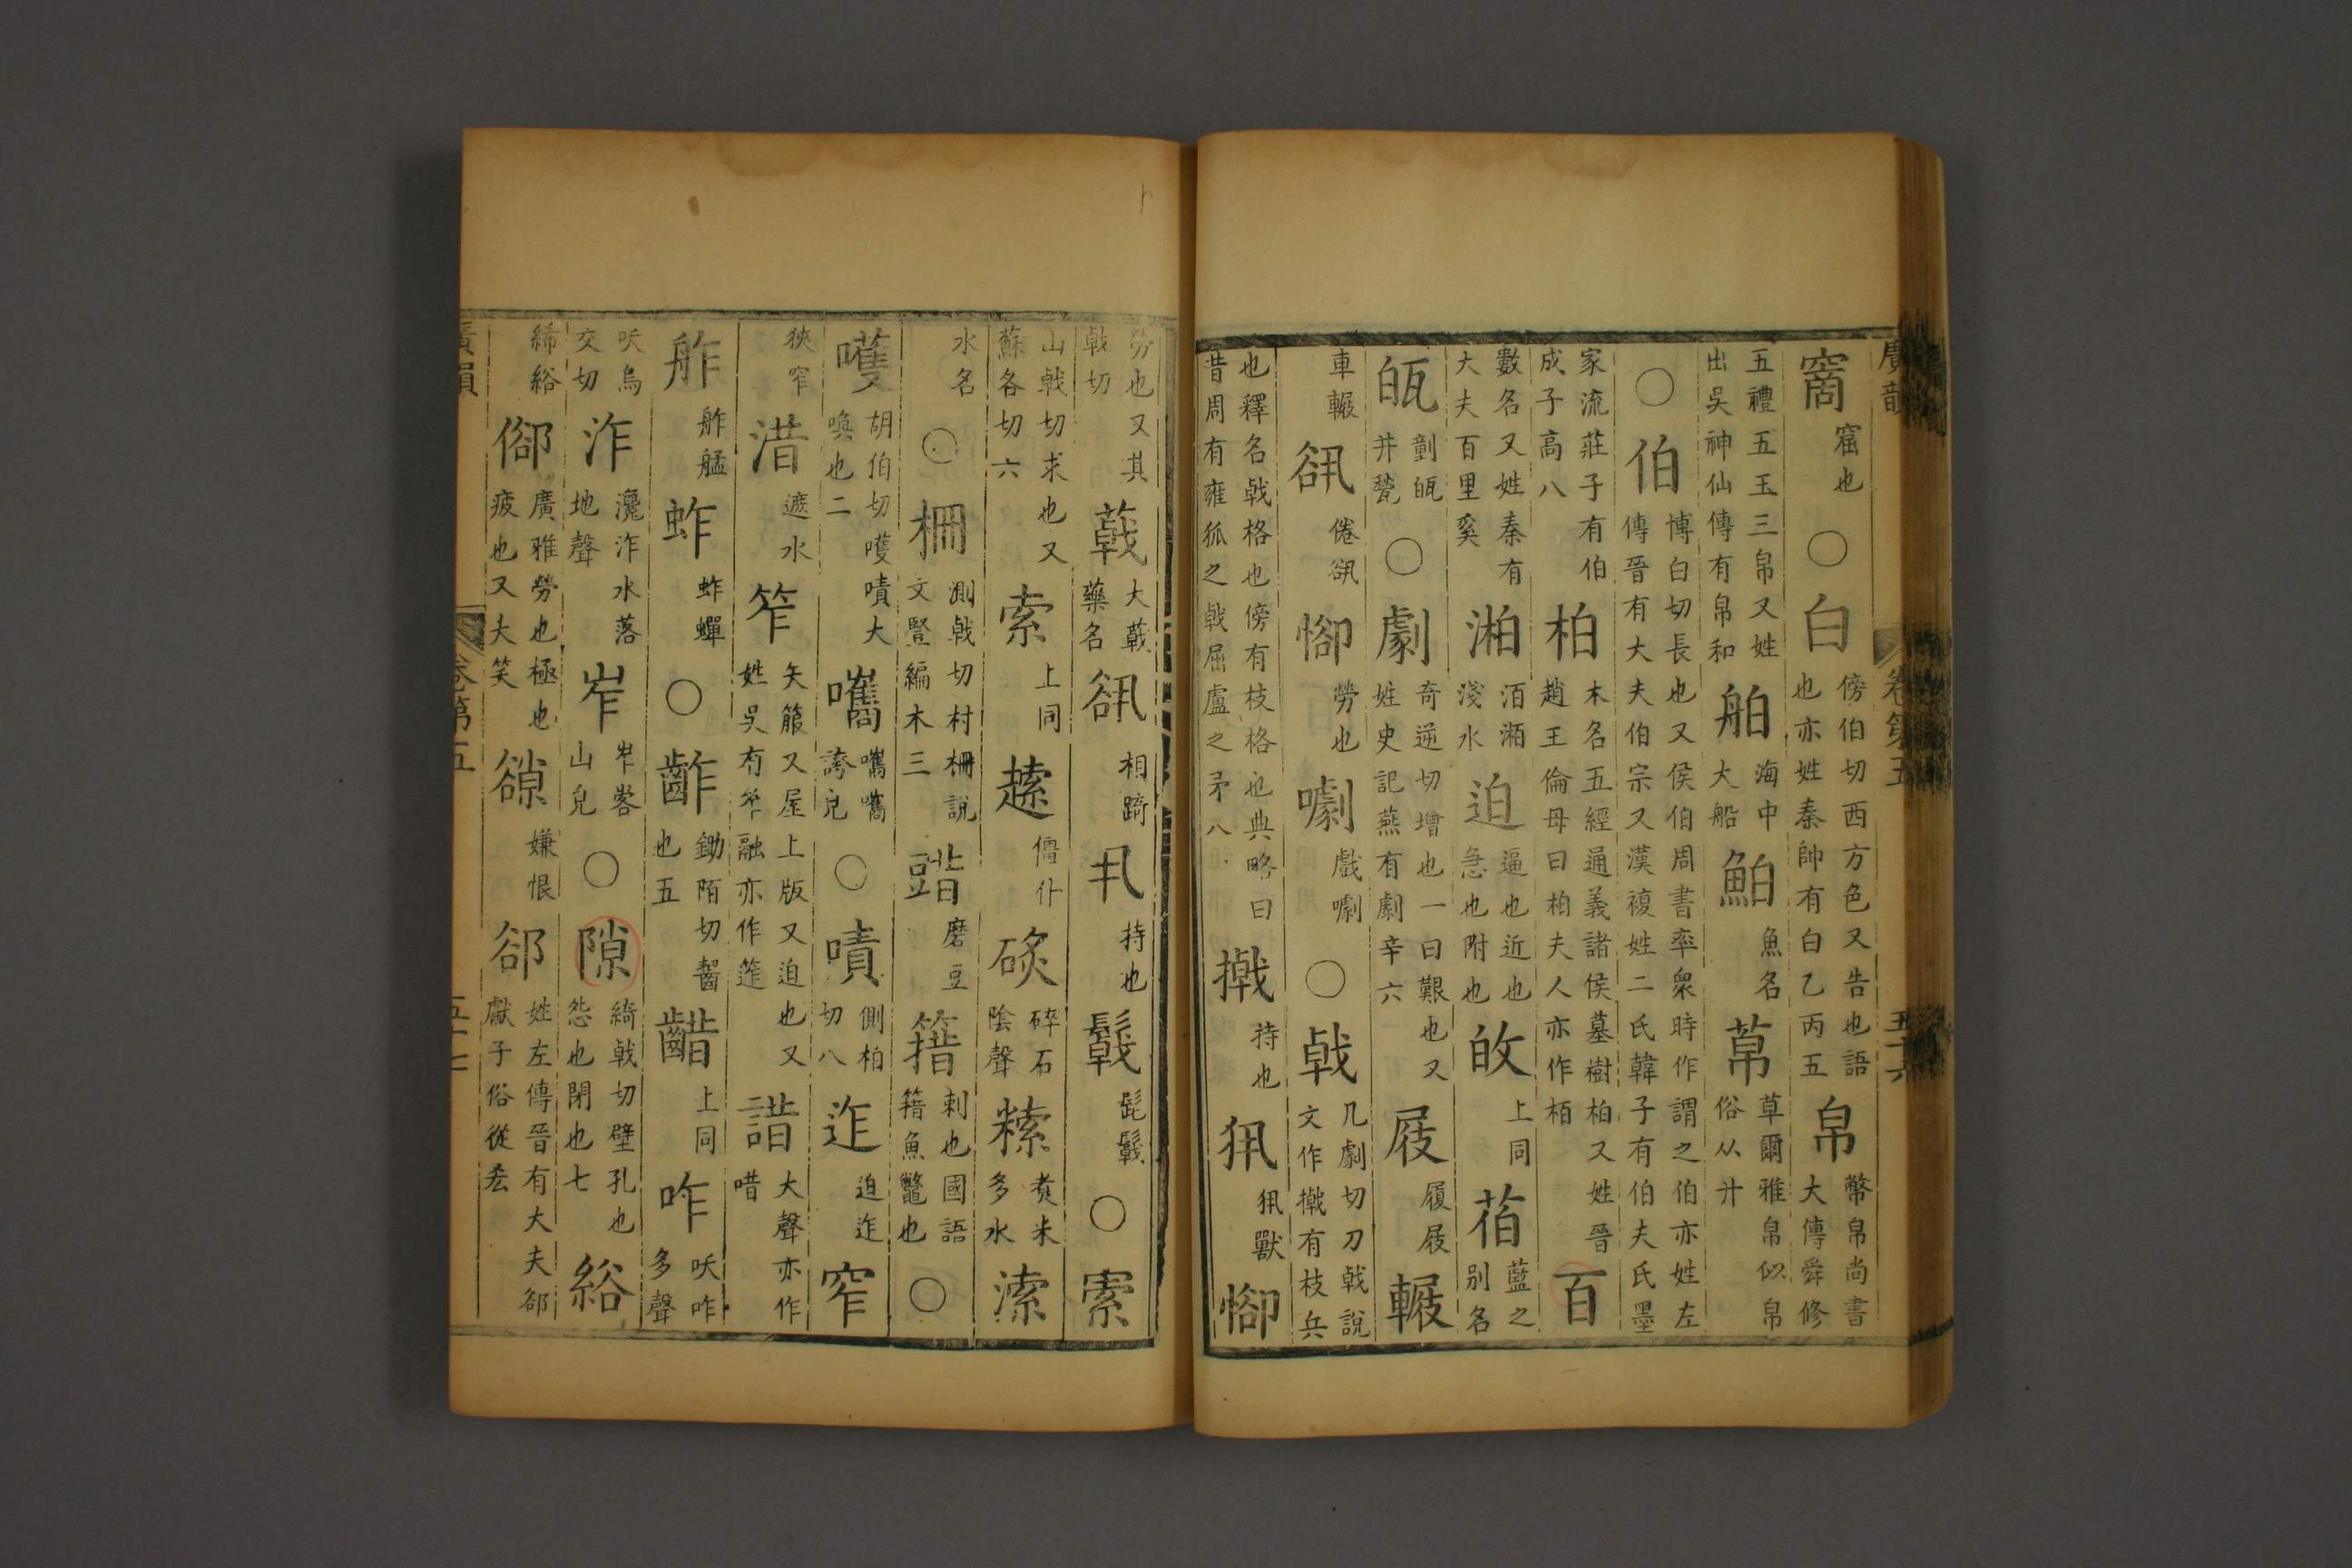 廣韻 卷第五 五十六
窩窟也○白傍伯切西方色又告也語也亦姓秦帥有白乙丙五帛幣帛尚書大傳舜修
五禮五玉三帛又姓出吳神仙傳有帛和舶海中大船鮊魚名䔤草爾雅帛似帛俗从廾
○伯博白切長也又侯伯周書率衆時作謂之伯亦姓左傳晉有大夫伯宗又漢複姓二氏韓子有伯夫氏墨
家流莊子有伯成子高八柏木名五經通義諸侯墓樹柏又姓晉趙王倫母曰柏夫人亦作栢百
數名又姓秦有大夫百里奚湐洦湐淺水迫逼也近也急也附也敀上同䒤藍之别名
瓸㔁瓸井甃○劇奇逆切增也一曰艱也又姓史記燕有劇辛六屐履屐䡖
車䡖䛠倦䛠㦸勞也噱戲噱○戟几劇切刀戟說文作㦸有枝兵
也釋名戟格也傍有枝格也典略曰昔周有雍狐之戟屈盧之矛八撠持也㹟㹟獸㥛
勞也又其戟切䕤大䕤藥名相踦丮持也髶○索
山戟切求也又蘇各切六索上同䞽僵仆碎石隂聲䊗煑米多水溹
水名○柵測戟切村柵說文豎編木三䜺磨豆簎刺也國語籍魚鼈也○
嚄胡伯切嚄嘖大喚也二嚄嚄誇皃○嘖側柏切八迮迫迮窄
狹窄㳻遮水笮矢箙又屋上版又迫也又姓吳有笮融亦作筰諎大聲亦作唶
舴舴艋蚱蚱蟬○齰鋤陌切齧也五齰上同咋㕭咋多聲
㕭烏交切泎瀺泎水落地聲岝岝峉山皃○隙綺戟切壁孔也怨也閑也七綌
絺綌㕁廣雅勞也極也疲也又大笑嫌恨郤姓左傳晉有大夫郤獻子俗從㕕
廣韻 卷第五 五十七